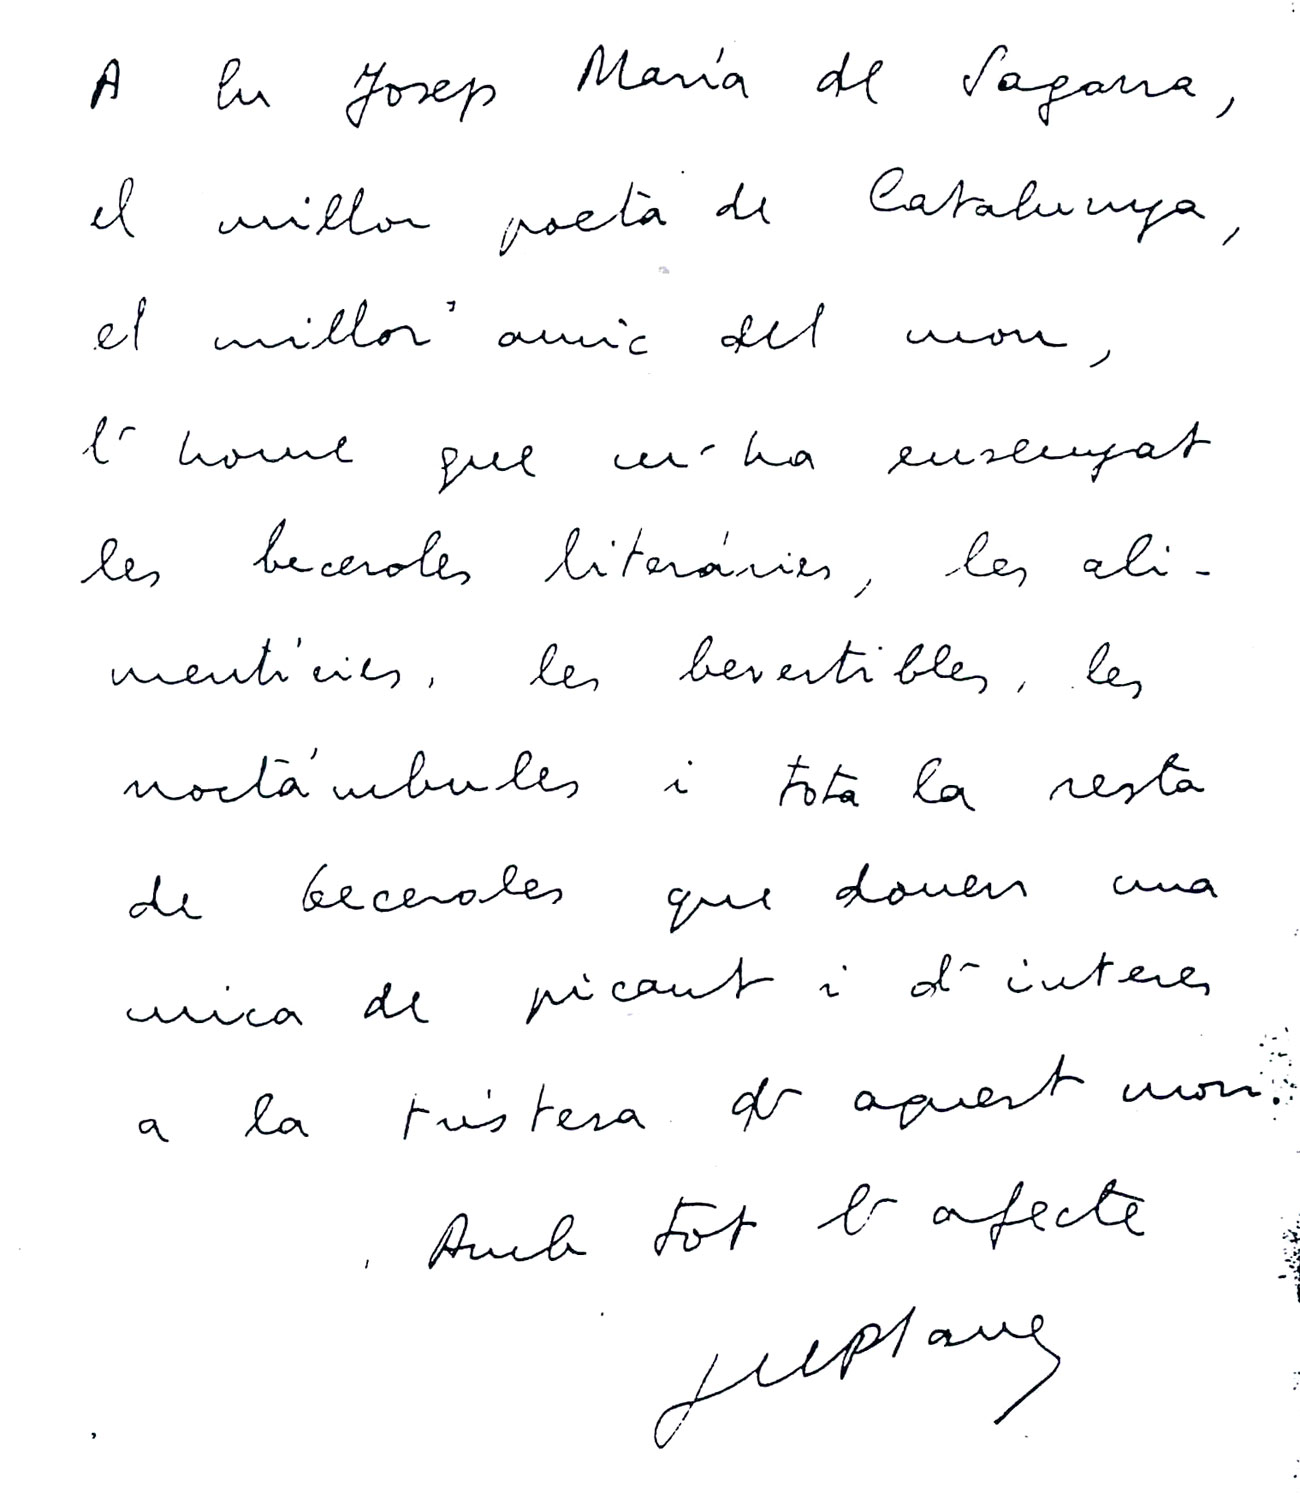 A En Josep María de Sagarra,
el millor poeta de Catalunya,
el millor amic del mon,
l'home que m'ha ensenyat
les beceroles literáries, les ali-
mentícies, les bevestibles, les
noctámbules i tota la resta
de beceroles que donen una
mica de picant i d'interes
a la tristesa d'aquest mon.
Amb tot l'afecte
JMPlanes